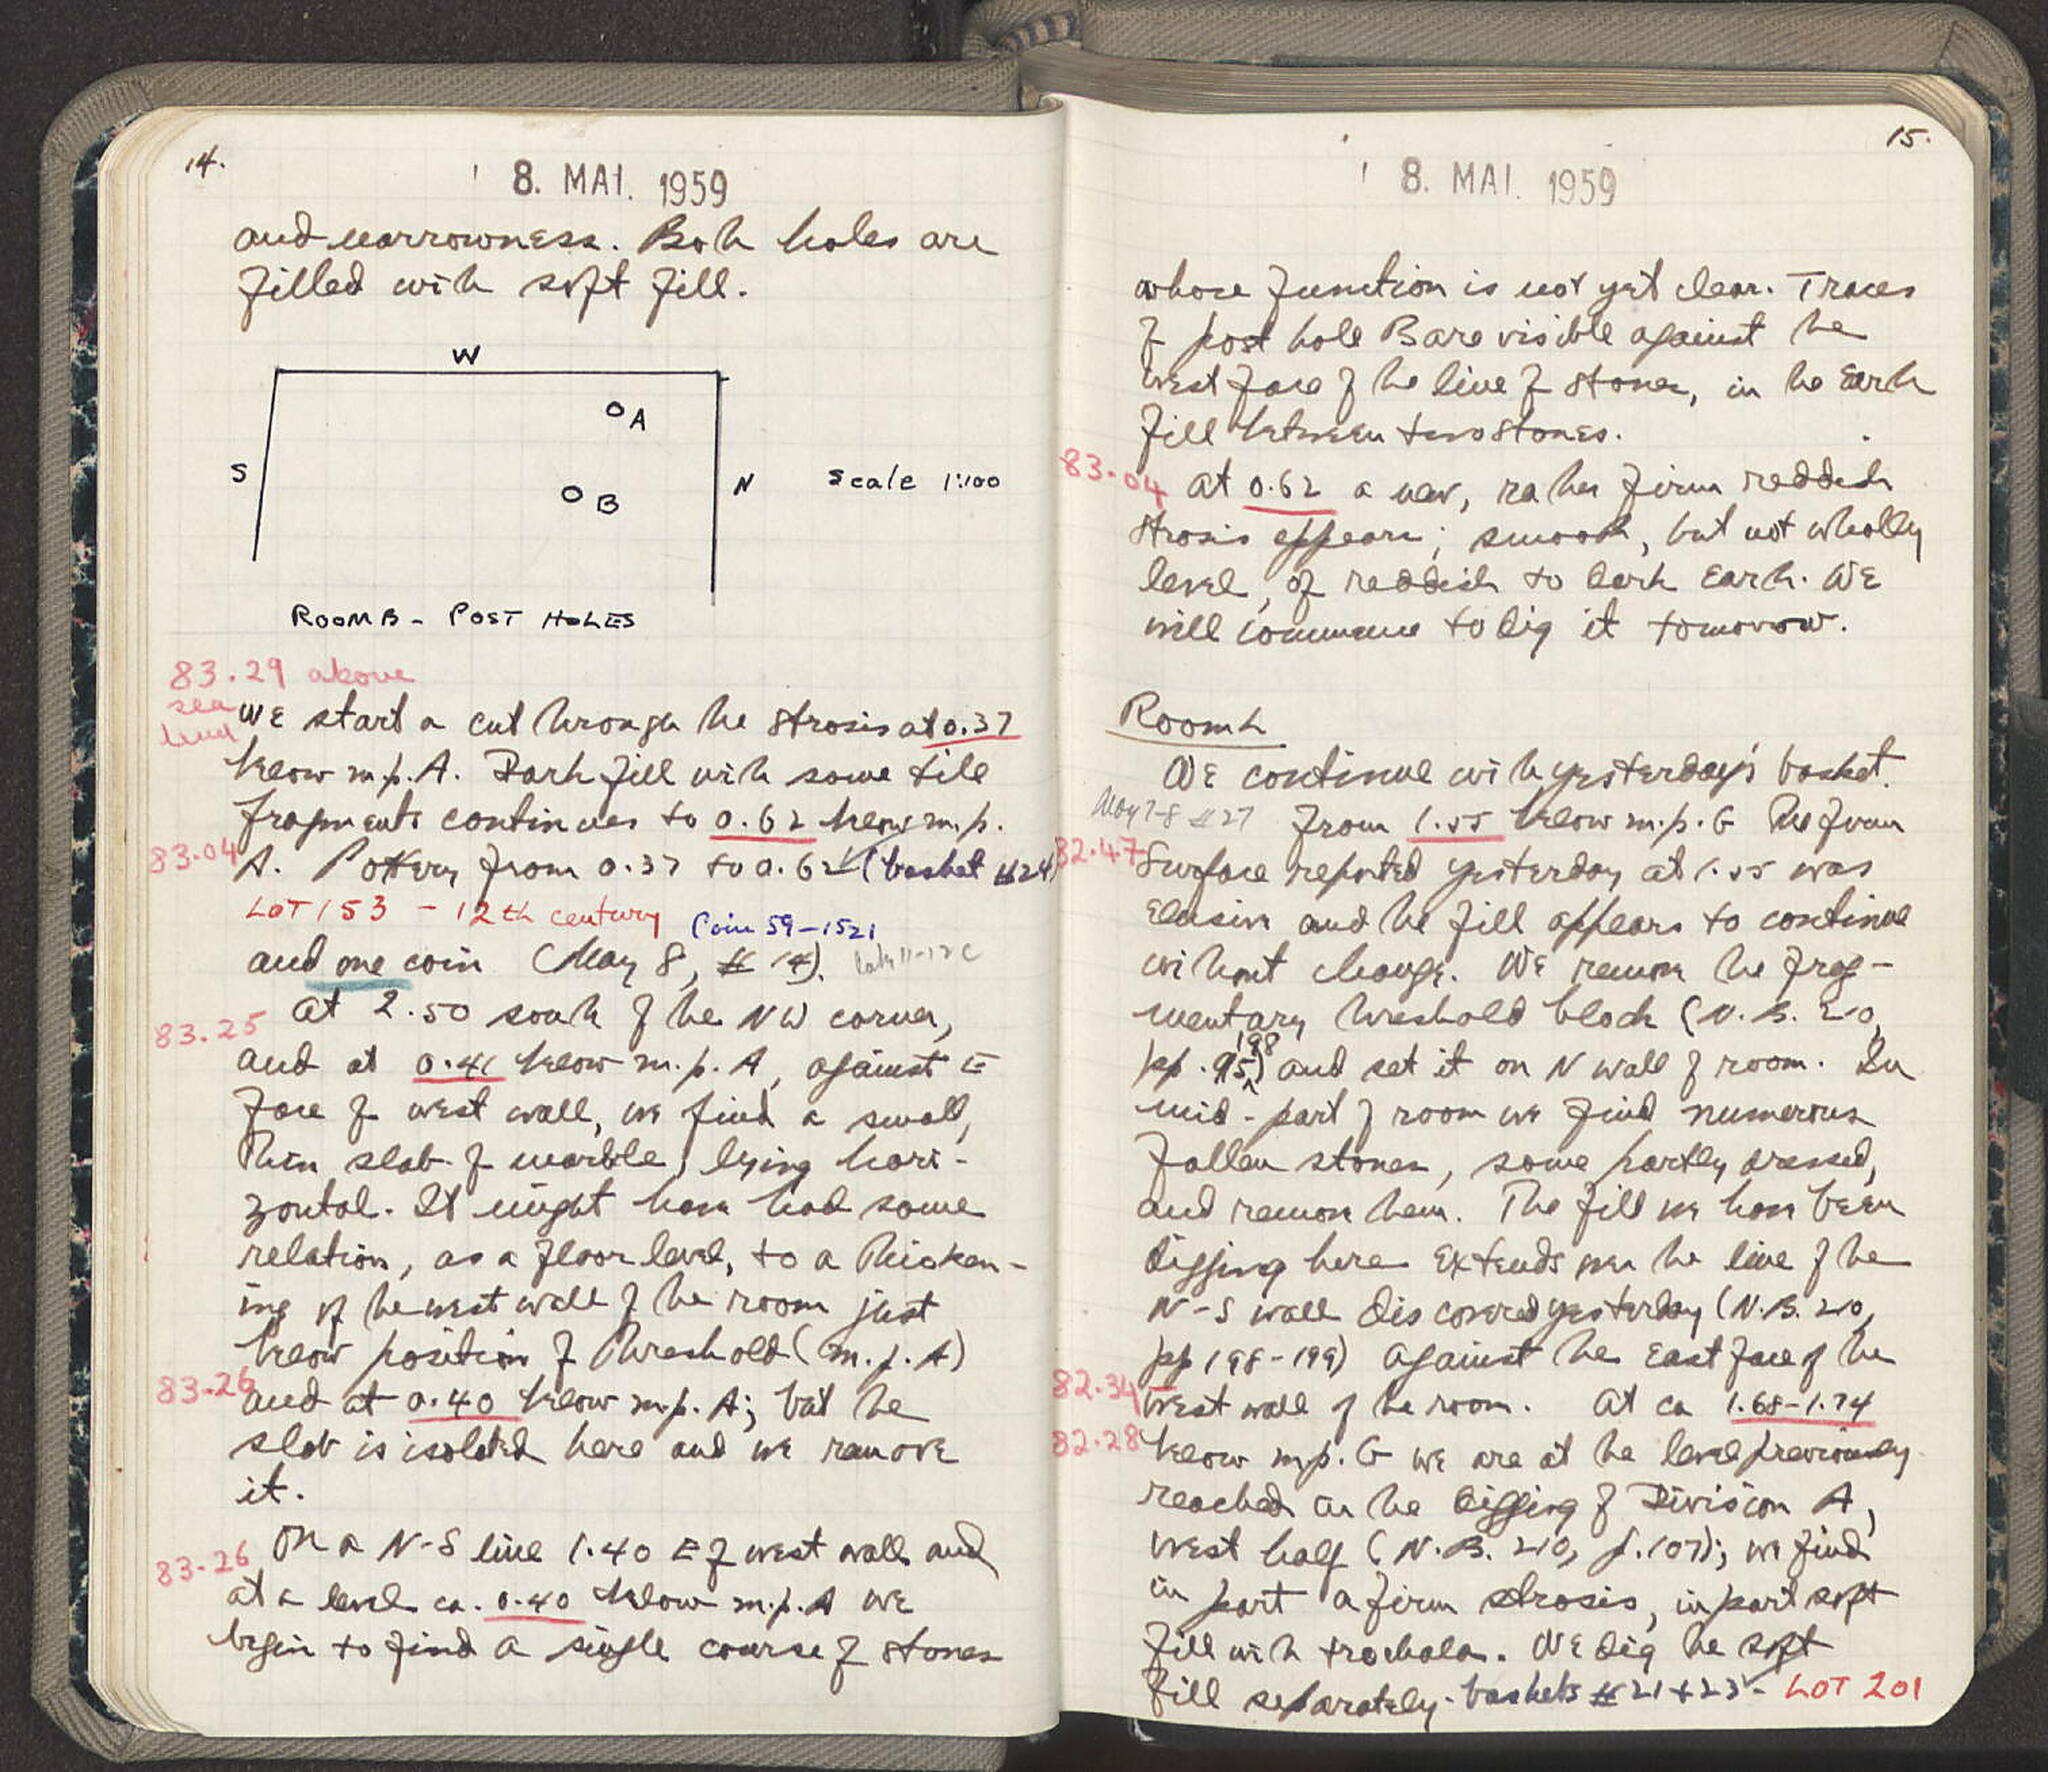 14.
8. MAI. 1959
and narrowness. Both holes are
filled with soft fill.
W
A
S
N
Scale 1:100
B
ROOM B - POST HOLES
83.29 above
sea
level
We start a cut through the strosis at 0.37
below m.p. A. Dark fill with some tile
fragments continues to 0.62 below m.p.
83.04
A. Pottery from 0.37 to 0.62 (basket #24)
LOT 153 - 12th century
Coin 59-1521
and one coin (May 8, # 14).
late 11-12 C
At 2.50 south of the NW corner,
83.25
and at 0.41 below m.p. A, against E
face of west wall, we find a small,
thin slab of marble, lying hori-
zontal. It might have had some
relation, as a floor level, to a thicken-
ing of the west wall of the room just
below position of threshold (m.p. A)
83.26
and at 0.40 below m.p. A; but the
slab is isolated here and we remove
it.
On a N-S line 1.40 E of west wall and
83.26
at a level ca. 0.40 below m.p. A we
begin to find a single course of stones
15.
8. MAI. 1959
whose function is not yet clear. Traces
of post hole B are visible against the
west face of the line of stones, in the earth
fill between two stones.
83.04
At 0.62 a new, rather firm reddish
strosis appears; smooth, but not wholly
level, of reddish to dark earth. We
will commence to dig it tomorrow.
Room L
We continue with yesterday's basket.
May 7-8 #27
from 1.55 below m.p. G The firm
82.47
surface reported yesterday at 1.55 was
elusive and the fill appears to continue
without change. We remove the frag-
mentary threshold block (N.B. 210,
pp. 95, 198) and set it on N wall of room. In
mid-part of room we find numerous
fallen stones, some partly dressed,
and remove them. The fill we have been
digging here extends over the line of the
N-S wall discovered yesterday (N.B. 210,
pp 198-199) against the east face of the
82.34
west wall of the room. At ca 1.68-1.74
82.28
below m.p. G we are at the level previously
reached in the digging of Division A,
west half (N.B. 210, p. 107); we find
in part a firm strosis, in part soft
fill with trochala. We dig the soft
fill separately - baskets #21 + 23 - LOT 201